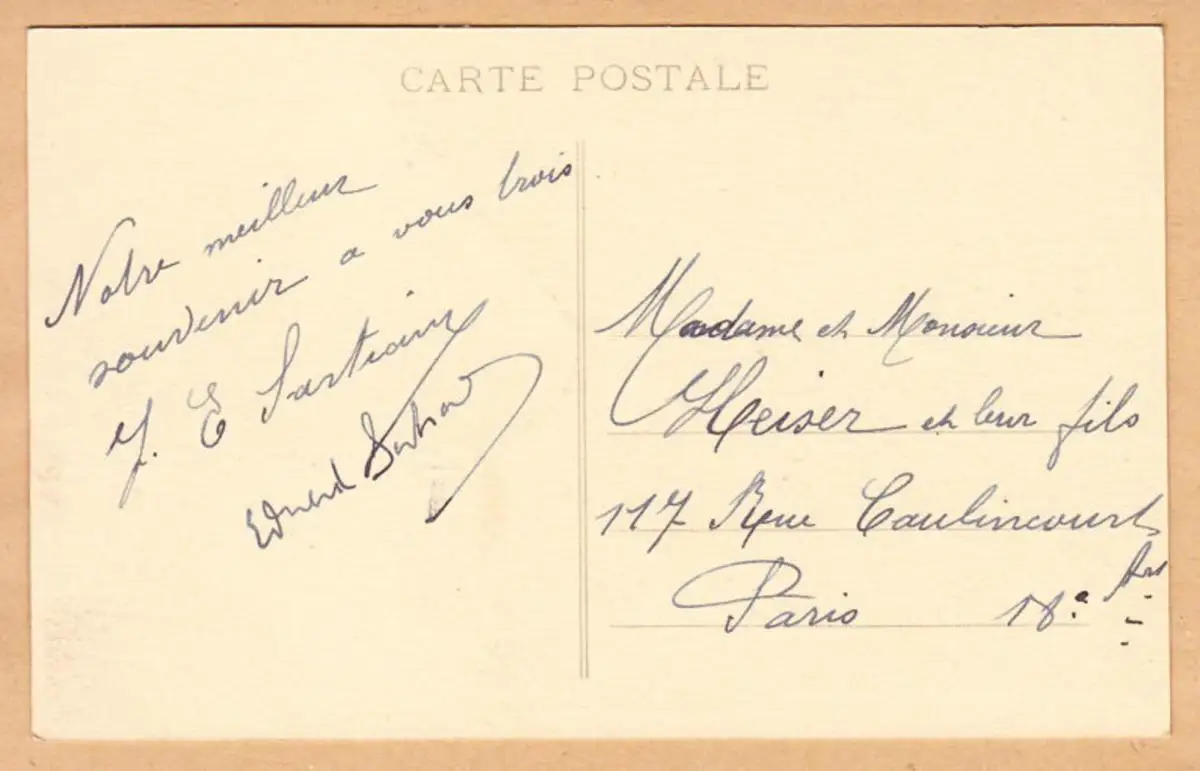 CARTE POSTALE
Notre meilleur
souvenir a vous trois
J. E
Madame et Monsieur
Heiser et leur fils
117 Rue Caulincourt
Paris 18.e Arr